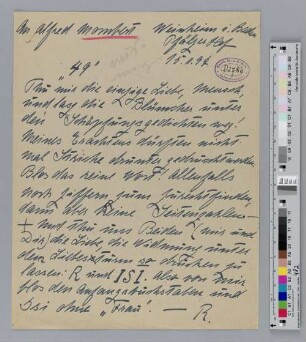 An Alfred Mombert
Weinheim a. B.
Pfälzerhof
15.
"49"
Thu mir die einzige Liebe, Mensch,
und lass die Blümchen unter
den Schöpfungsgedichten weg!
Meines Erachtens dürften nicht
mal Striche drunter gedruckt werden
Blos das reine Wort! Allenfalls
noch Ziffern zum Zurechtfinden,
dann aber keine Seitenzahlen.
+ Und thu uns Beiden, mir und
Dir, die Liebe, die Widmung unter
dem so drucken zu
lassen: R und ISI. Also von mir
blos den Anfangsbuchstaben und
Isi ohne "Frau". — R.